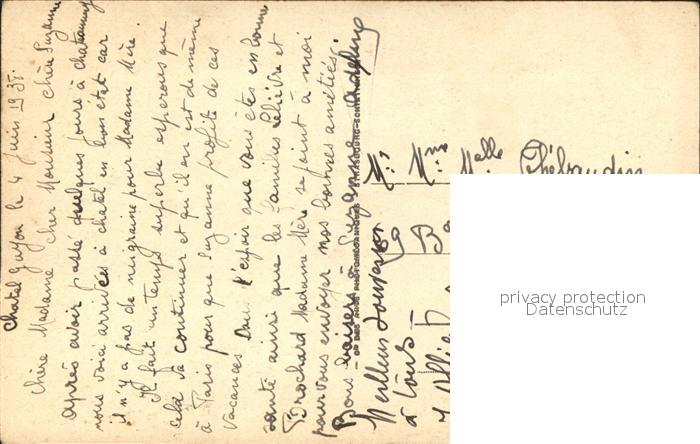 Chatel Guyon le 4 Juin 1935.
Chère Madame cher Monsieur chère Suzanne
après avoir passé quelques jours à
nous voici arrivées à chatel en bon état car
il n'y a pas de migraine pour Madame Mère.
Il fait un temps superbe esperons que
cela va continuer et qu'il en est de même
à Paris pour que Suzanne profite de ces
vacances Dans l'espoir que vous êtes en bonne
santé ainsi que les familles Lelièvre et
Brochard Madame Mère se joint à moi
pour vous envoyer nos bonnes amitiés.
Bons baisers à Suzanne
Meilleurs
à tous
Mr Mme Melle Thébaudin
privacy protection
Datenschutz